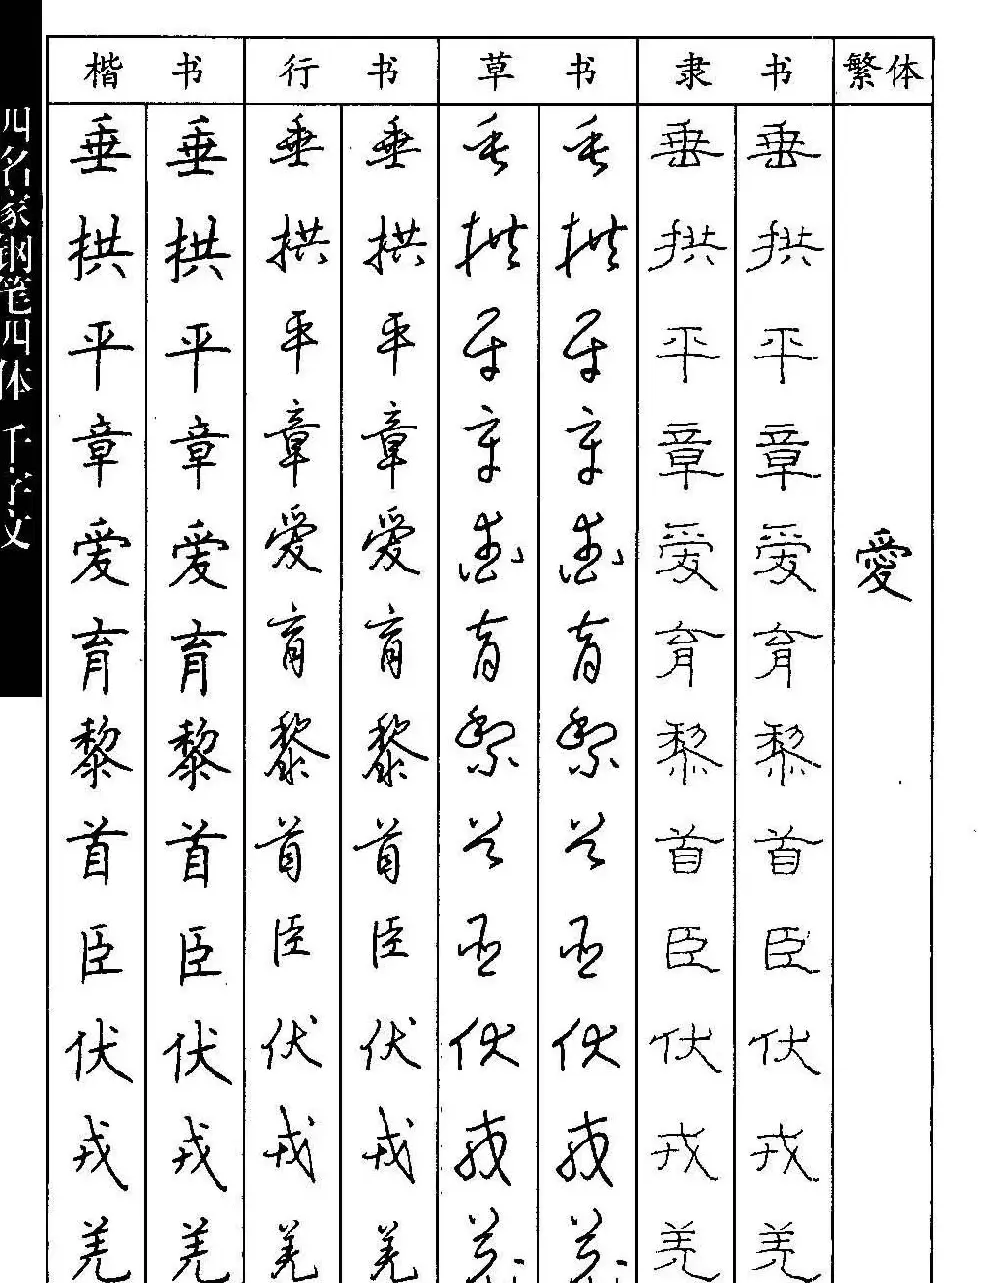 四名家钢笔四体 千字文
楷书 行书 草书 隶书 繁体
垂 垂 垂 垂 垂 垂 垂 垂
拱 拱 拱 拱 拱 拱 拱 拱
平 平 平 平 平 平 平 平
章 章 章 章 章 章 章 章
爱 爱 爱 爱 爱 爱 爱 爱 愛
育 育 育 育 育 育 育 育
黎 黎 黎 黎 黎 黎 黎 黎
首 首 首 首 首 首 首 首
臣 臣 臣 臣 臣 臣 臣 臣
伏 伏 伏 伏 伏 伏 伏 伏
戎 戎 戎 戎 戎 戎 戎 戎
羌 羌 羌 羌 羌 羌 羌 羌